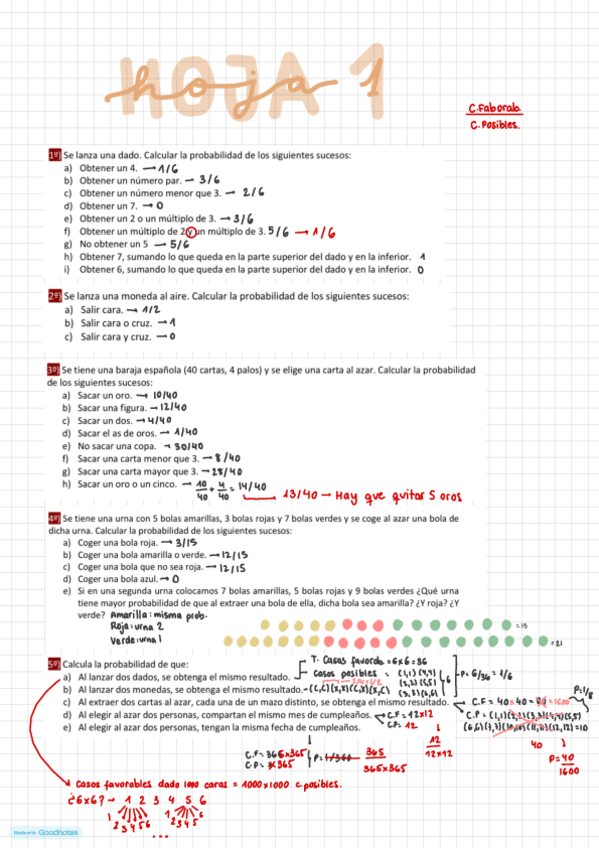 HOJA 1
hoja
C.Faborab.
C. Posibles.
1º) Se lanza una dado. Calcular la probabilidad de los siguientes sucesos:
a) Obtener un 4. → 1/6
b) Obtener un número par. → 3/6
c) Obtener un número menor que 3. → 2/6
d) Obtener un 7. → 0
e) Obtener un 2 o un múltiplo de 3. → 3/6
f) Obtener un múltiplo de 2 y un múltiplo de 3. 5/6 → 1/6
g) No obtener un 5 → 5/6
h) Obtener 7, sumando lo que queda en la parte superior del dado y en la inferior. 1
i) Obtener 6, sumando lo que queda en la parte superior del dado y en la inferior. 0
2º) Se lanza una moneda al aire. Calcular la probabilidad de los siguientes sucesos:
a) Salir cara. → 1/2
b) Salir cara o cruz. → 1
c) Salir cara y cruz. → 0
3º) Se tiene una baraja española (40 cartas, 4 palos) y se elige una carta al azar. Calcular la probabilidad
de los siguientes sucesos:
a) Sacar un oro. → 10/40
b) Sacar una figura. → 12/40
c) Sacar un dos. → 4/40
d) Sacar el as de oros. → 1/40
e) No sacar una copa. → 30/40
f) Sacar una carta menor que 3. → 8/40
g) Sacar una carta mayor que 3. → 28/40
h) Sacar un oro o un cinco. → 10/40 + 4/40 = 14/40
13/40 → Hay que quitar 5 oros
4º) Se tiene una urna con 5 bolas amarillas, 3 bolas rojas y 7 bolas verdes y se coge al azar una bola de
dicha urna. Calcular la probabilidad de los siguientes sucesos:
a) Coger una bola roja. → 3/15
b) Coger una bola amarilla o verde. → 12/15
c) Coger una bola que no sea roja. → 12/15
d) Coger una bola azul. → 0
e) Si en una segunda urna colocamos 7 bolas amarillas, 5 bolas rojas y 9 bolas verdes ¿Qué urna
tiene mayor probabilidad de que al extraer una bola de ella, dicha bola sea amarilla? ¿Y roja? ¿Y
verde? Amarilla: misma prob.
Roja: urna 2
Verde: urna 1
=15
=21
5º) Calcula la probabilidad de que:
T. Casas favorab = 6x6 = 36
a) Al lanzar dos dados, se obtenga el mismo resultado.
Casos posibles =
(1,1) (4,4)
(2,2) (5,5)
(3,3) (6,6)
6
P= 6/36 = 1/6
b) Al lanzar dos monedas, se obtenga el mismo resultado. → (C,C)(X,X)(C,X)(X,C)
c) Al extraer dos cartas al azar, cada una de un mazo distinto, se obtenga el mismo resultado.
C.F = 40 x 40 = 1600
P=1/8
d) Al elegir al azar dos personas, compartan el mismo mes de cumpleaños.
C.F = 12x12
CP: 12
C.P = (1,1)(2,2)(3,3)(4,4)(5,5)
e) Al elegir al azar dos personas, tengan la misma fecha de cumpleaños.
12
12x12
=10
40
P= 40
1600
C.F = 365x365
C.P = 365
P= 1/365
365
365x365
Casos favorables dado 1000 caras = 1000x1000 c.posibles.
¿6x6? → 1 2 3 4 5 6
1 2 3 4 5 6
1 2 3 4 5 6
...
Made with Goodnotes